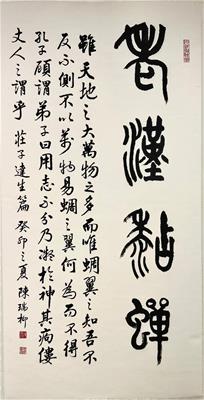 老漢黏蟬
雖天地之大萬物之多而唯蜩翼之知吾不
反不側不以萬物易蜩之翼何為而不得
孔子顧謂弟子曰用志不分乃凝於神其痀僂
丈人之謂乎 莊子達生篇 癸卯之夏 陳瑞柳